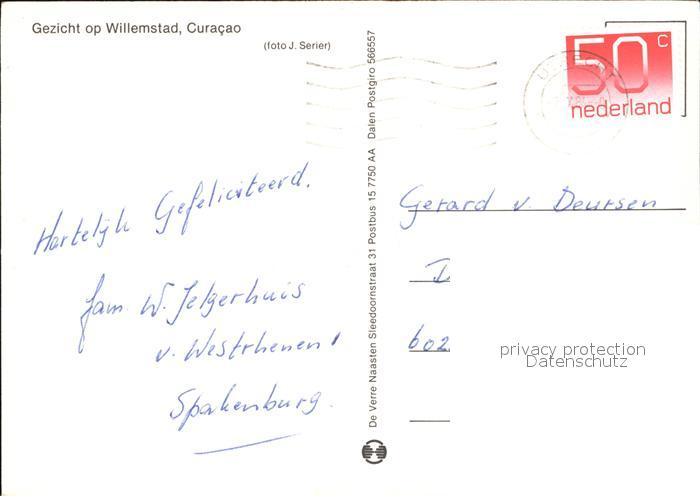 Gezicht op Willemstad, Curaçao
(foto J. Serier)
Hartelijk Gefeliciteerd.
fam. W. Jelgerhuis
v. Westrhenen
Spakenburg.
De Verre Naasten Sleedoornstraat 31 Postbus 15 7750 AA Dalen Postgiro 566557
50 c
nederland
Gerard v. Deursen
I
602
privacy protection
Datenschutz